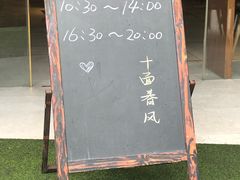 10:30～14:00
16:30～20:00
十面春风